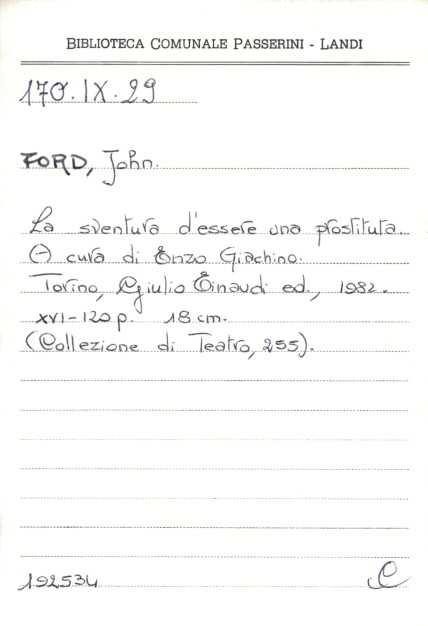 BIBLIOTECA COMUNALE PASSERINI - LANDI
170.IX.29
FORD, John.
La sventura d'essere una prostituta.
A cura di Enzo Giachino.
Torino, Giulio Einaudi ed., 1982.
XVI-120 p. 18 cm.
(Collezione di Teatro, 255).
192534
C